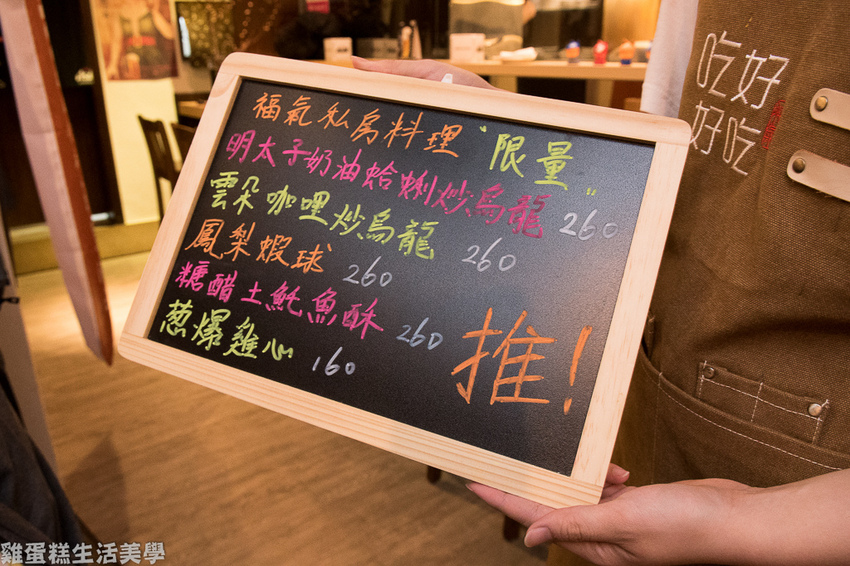 福氣私房料理"限量"
明太子奶油蛤蜊炒烏龍 260
雲朵咖哩炒烏龍 260
鳳梨蝦球 260
糖醋土魠魚酥 260
蔥爆雞心 160
推!
吃好
好吃
雞蛋糕生活美學